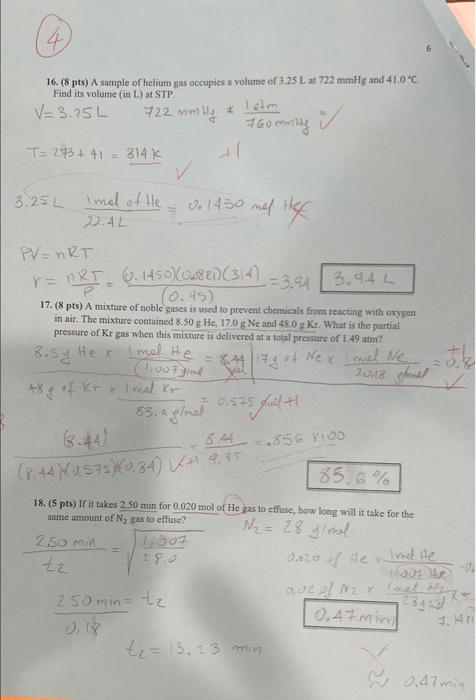 4
6
16. (8 pts) A sample of helium gas occupies a volume of 3.25 L at 722 mmHg and 41.0 °C.
Find its volume (in L) at STP.
V = 3.25 L 722 mmHg × 1 atm / 760 mmHg = ✓
T = 273 + 41 = 314 K +1
✓
3.25 L 1 mol of He / 22.4 L = 0.1450 mol He
PV = nRT
V = nRT / P = (0.1450)(0.0821)(314) / (0.95) = 3.94 3.94 L
17. (8 pts) A mixture of noble gases is used to prevent chemicals from reacting with oxygen
in air. The mixture contained 8.50 g He, 17.0 g Ne and 48.0 g Kr. What is the partial
pressure of Kr gas when this mixture is delivered at a total pressure of 1.49 atm?
8.5g He × 1 mol He / 1.007 g/mol = 8.44 mol 17g of Ne × 1 mol Ne / 20.18 g/mol = 0.8 +1
48 g of Kr × 1 mol Kr / 83. g/mol = 0.575 mol +1
(8.44) / (8.44)+(0.575)+(0.84) ✓+1 = 8.44 / 9.85 = .856 × 100
85.6 %
18. (5 pts) If it takes 2.50 min for 0.020 mol of He gas to effuse, how long will it take for the
same amount of N₂ gas to effuse?
N₂ = 28 g/mol
2.50 min / t₂ = √ 1.007 / 28.0
0.020 of He × 1 mol He / 1.007 He
2.50 min / 0.18 = t₂
0.02 of N2 × 1 mol N₂ / 28 g/mol =
0.47 min
t₂ = 13.23 min
≈ 0.47 min